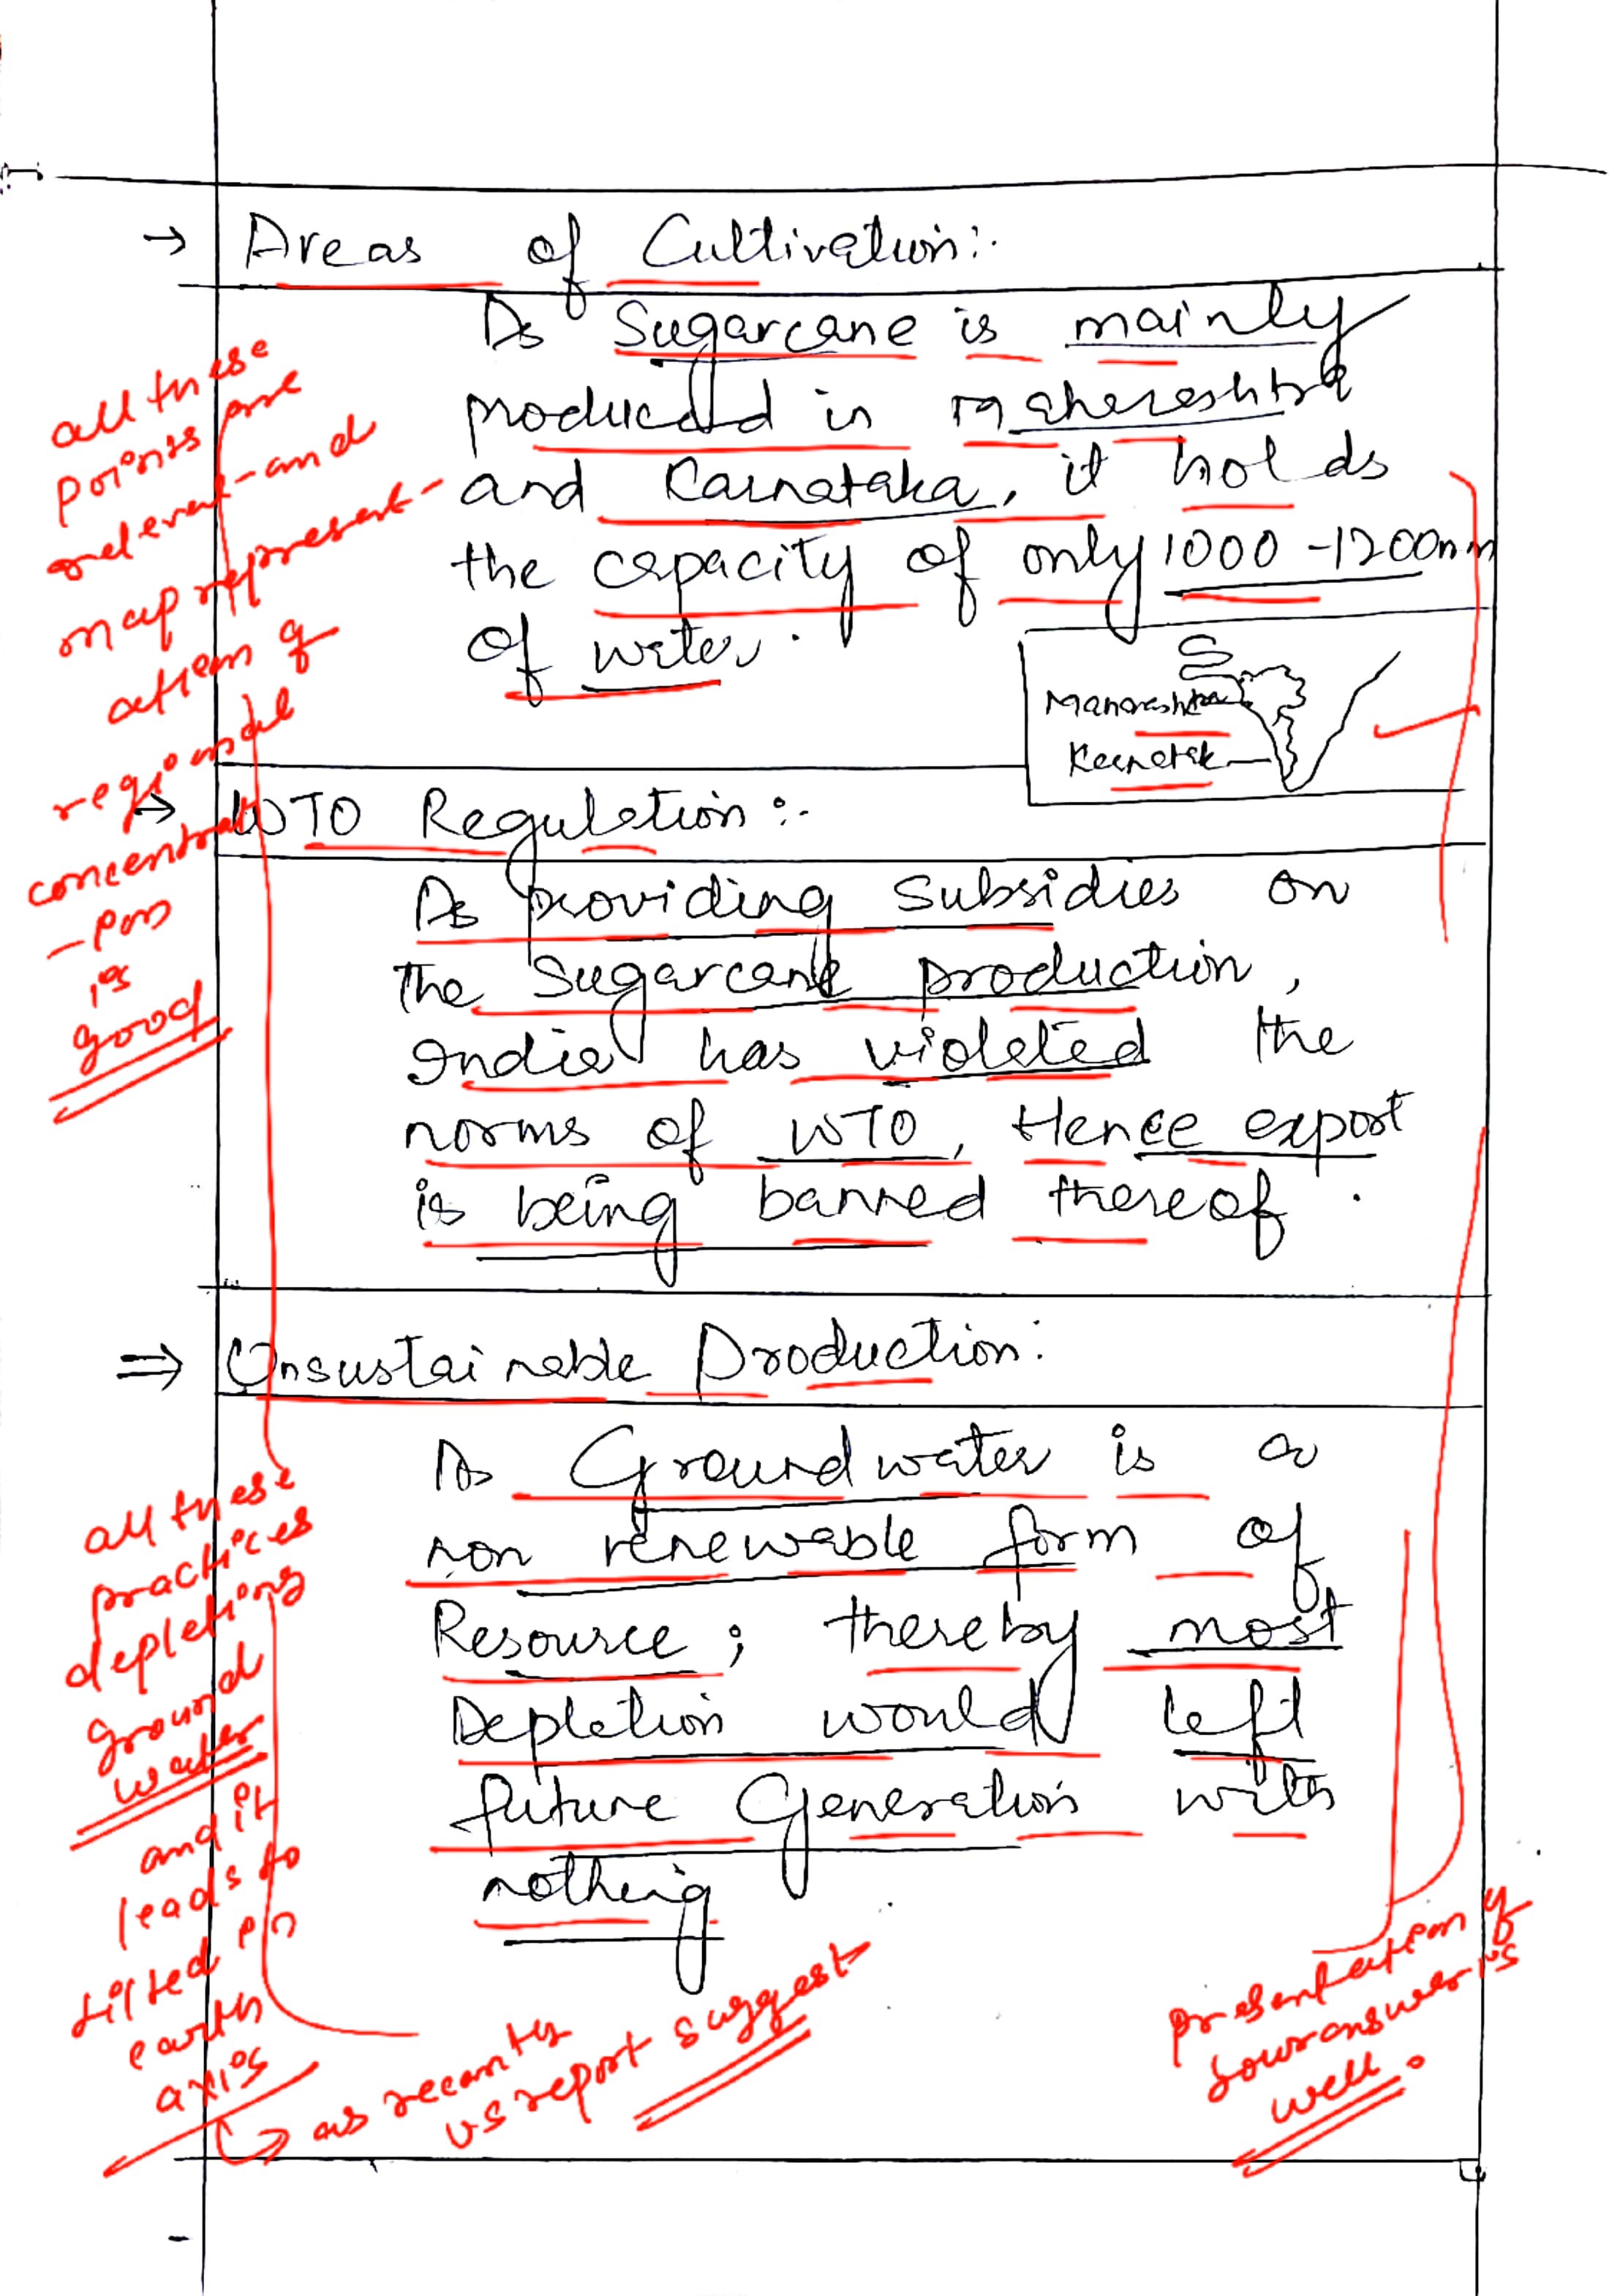 → Areas of Cultivation:.
As Sugarcane is mainly
produced in Maharashtra
and Karnataka, it holds
the capacity of only 1000 - 1200mm
of water.
Maharashtra
Karnatak
→ WTO Regulation :-
As providing subsidies on
the Sugarcane production,
India has violated the
norms of WTO, Hence export
is being banned thereof.
⇒ Unsustainable Production:
As Groundwater is a
non renewable form of
Resource; thereby most
Depletion would left
future Generation with
nothing
all these
points are
relevant and
map represent-
ation of
regional
concentrat
-ion
is
good
all these
practices
depleting
ground
water
and it
leads to
tilted in
earth
axis
→ as recently
US report suggest
presentation of
your answer is
well.